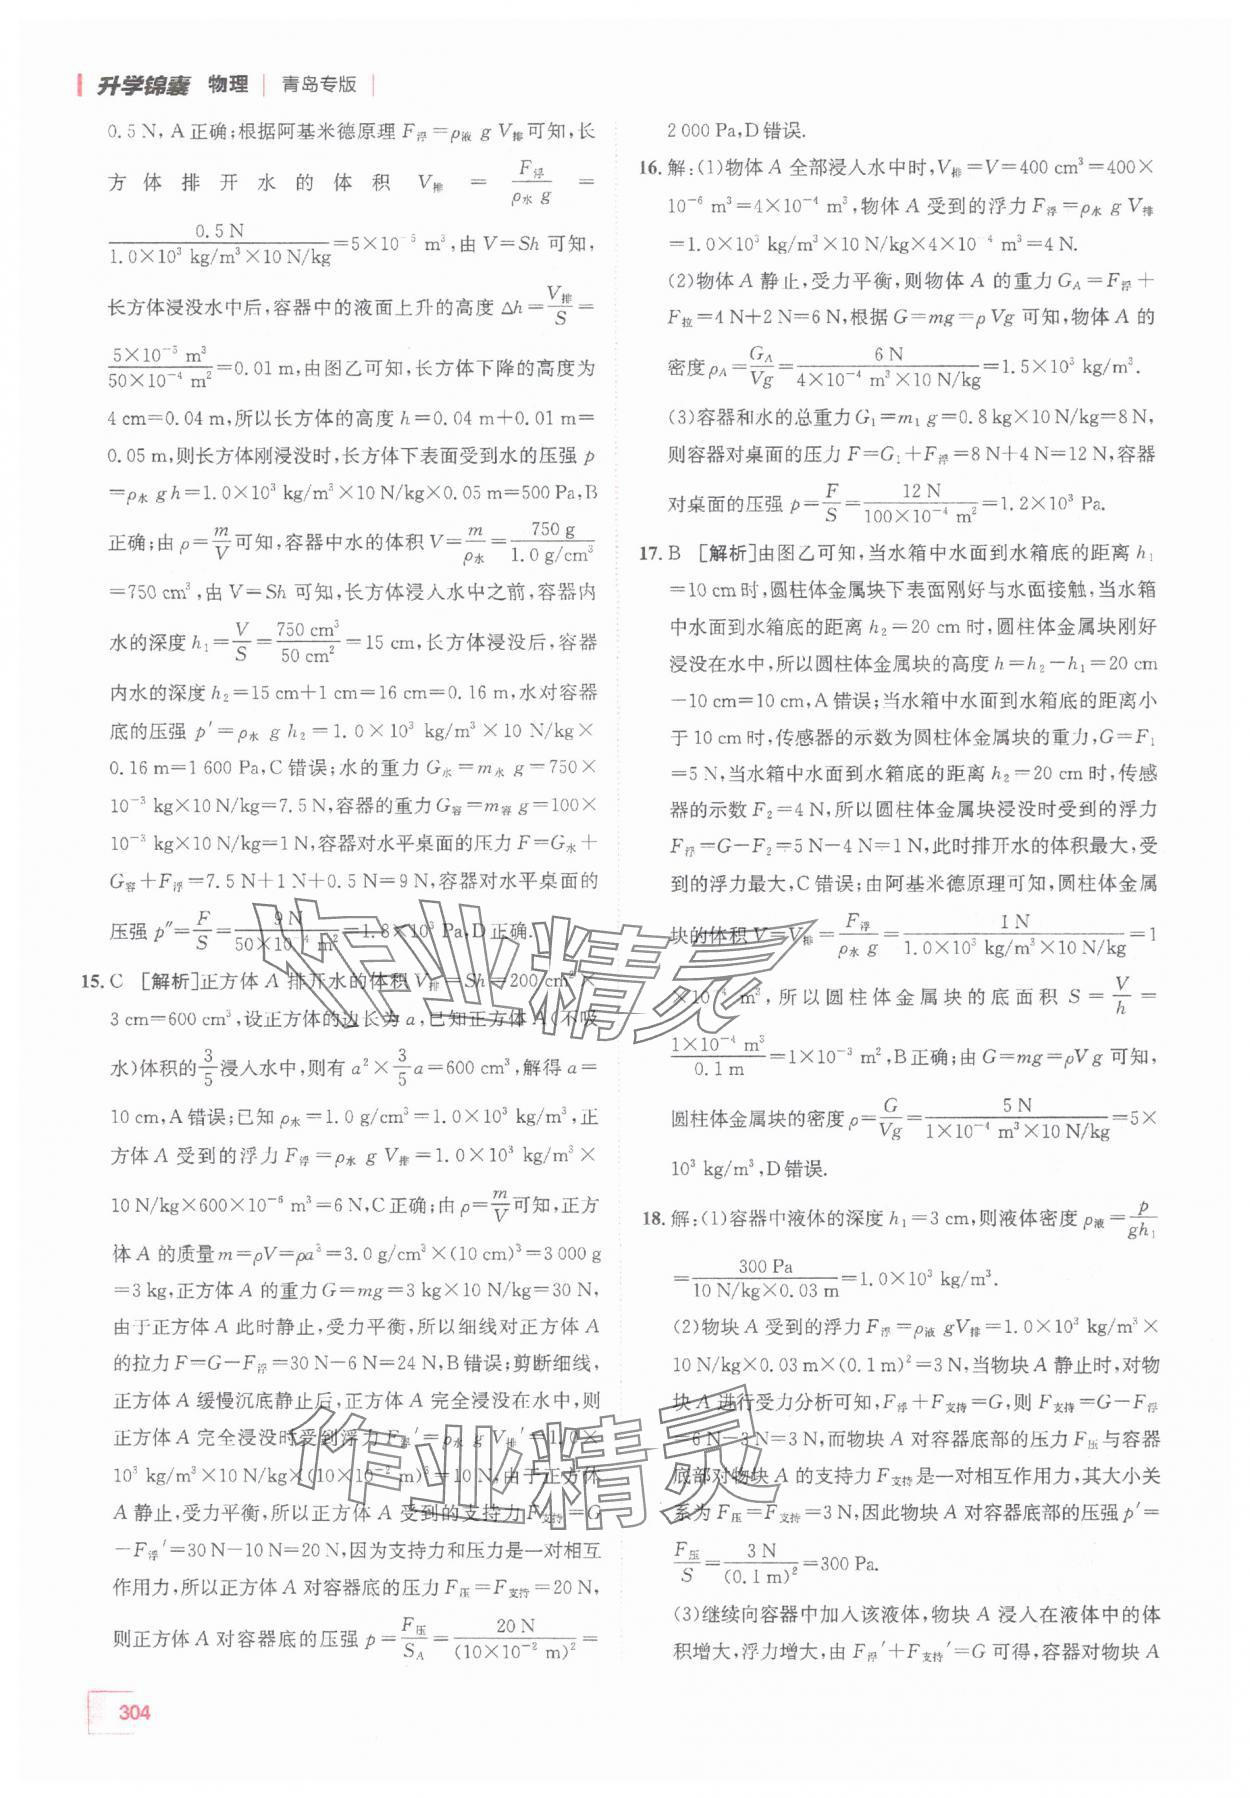 升学锦囊 物理 | 青岛专版
0.5 N, A 正确;根据阿基米德原理 F浮=ρ液 g V排 可知,长
方体排开水的体积 V排 = F浮/(ρ水 g) =
0.5 N/(1.0×10³ kg/m³×10 N/kg)=5×10⁻⁵ m³,由 V=Sh 可知,
长方体浸没水中后,容器中的液面上升的高度 Δh=V排/S=
(5×10⁻⁵ m³)/(50×10⁻⁴ m²)=0.01 m,由图乙可知,长方体下降的高度为
4 cm=0.04 m,所以长方体的高度 h=0.04 m+0.01 m=
0.05 m,则长方体刚浸没时,长方体下表面受到水的压强 p
=ρ水 gh=1.0×10³ kg/m³×10 N/kg×0.05 m=500 Pa,B
正确;由 ρ=m/V可知,容器中水的体积 V=m/ρ水=750 g/(1.0 g/cm³)
=750 cm³,由 V=Sh 可知,长方体浸入水中之前,容器内
水的深度 h₁=V/S=750 cm³/50 cm²=15 cm,长方体浸没后,容器
内水的深度 h₂=15 cm+1 cm=16 cm=0.16 m,水对容器
底的压强 p′=ρ水 g h₂=1.0×10³ kg/m³×10 N/kg×
0.16 m=1 600 Pa,C 错误;水的重力 G水=m水 g=750×
10⁻³ kg×10 N/kg=7.5 N,容器的重力 G容=m容 g=100×
10⁻³ kg×10 N/kg=1 N,容器对水平桌面的压力 F=G水+
G容+F浮=7.5 N+1 N+0.5 N=9 N,容器对水平桌面的
压强 p″=F/S=9 N/(50×10⁻⁴ m²)=1.8×10³ Pa,D 正确.
15. C [解析]正方体 A 排开水的体积 V排=Sh=200 cm²×
3 cm=600 cm³,设正方体的边长为 a,已知正方体 A(不吸
水)体积的3/5浸入水中,则有 a²×3/5a=600 cm³,解得 a=
10 cm,A 错误;已知 ρ水=1.0 g/cm³=1.0×10³ kg/m³,正
方体 A 受到的浮力 F浮=ρ水 g V排=1.0×10³ kg/m³×
10 N/kg×600×10⁻⁶ m³=6 N,C 正确;由 ρ=m/V可知,正方
体 A 的质量 m=ρV=ρa³=3.0 g/cm³×(10 cm)³=3 000 g
=3 kg,正方体 A 的重力 G=mg=3 kg×10 N/kg=30 N,
由于正方体 A 此时静止,受力平衡,所以细线对正方体 A
的拉力 F=G−F浮=30 N−6 N=24 N,B 错误;剪断细线,
正方体 A 缓慢沉底静止后,正方体 A 完全浸没在水中,则
正方体 A 完全浸没时受到浮力 F浮′=ρ水 g V排′=1.0×
10³ kg/m³×10 N/kg×(10×10⁻² m)³=10 N,由于正方体
A 静止,受力平衡,所以正方体 A 受到的支持力 F支持=G
−F浮′=30 N−10 N=20 N,因为支持力和压力是一对相互
作用力,所以正方体 A 对容器底的压力 F压=F支持=20 N,
则正方体 A 对容器底的压强 p=F压/S_A=20 N/(10×10⁻² m)²=
304
2 000 Pa,D 错误.
16. 解:(1)物体 A 全部浸入水中时,V排=V=400 cm³=400×
10⁻⁶ m³=4×10⁻⁴ m³,物体 A 受到的浮力 F浮=ρ水 g V排
=1.0×10³ kg/m³×10 N/kg×4×10⁻⁴ m³=4 N.
(2)物体 A 静止,受力平衡,则物体 A 的重力 G_A=F浮+
F拉=4 N+2 N=6 N,根据 G=mg=ρVg 可知,物体 A 的
密度 ρ_A=G_A/Vg=6 N/(4×10⁻⁴ m³×10 N/kg)=1.5×10³ kg/m³.
(3)容器和水的总重力 G₁=m₁ g=0.8 kg×10 N/kg=8 N,
则容器对桌面的压力 F=G₁+F浮=8 N+4 N=12 N,容器
对桌面的压强 p=F/S=12 N/(100×10⁻⁴ m²)=1.2×10³ Pa.
17. B [解析]由图乙可知,当水箱中水面到水箱底的距离 h₁
=10 cm 时,圆柱体金属块下表面刚好与水面接触,当水箱
中水面到水箱底的距离 h₂=20 cm 时,圆柱体金属块刚好
浸没在水中,所以圆柱体金属块的高度 h=h₂−h₁=20 cm
−10 cm=10 cm,A 错误;当水箱中水面到水箱底的距离小
于 10 cm 时,传感器的示数为圆柱体金属块的重力,G=F₁
=5 N,当水箱中水面到水箱底的距离 h₂=20 cm 时,传感
器的示数 F₂=4 N,所以圆柱体金属块浸没时受到的浮力
F浮=G−F₂=5 N−4 N=1 N,此时排开水的体积最大,受
到的浮力最大,C 错误;由阿基米德原理可知,圆柱体金属
块的体积 V=V排=F浮/(ρ水 g)=1 N/(1.0×10³ kg/m³×10 N/kg)=1
×10⁻⁴ m³,所以圆柱体金属块的底面积 S=V/h=
(1×10⁻⁴ m³)/0.1 m=1×10⁻³ m²,B 正确;由 G=mg=ρVg 可知,
圆柱体金属块的密度 ρ=G/Vg=5 N/(1×10⁻⁴ m³×10 N/kg)=5×
10³ kg/m³,D 错误.
18. 解:(1)容器中液体的深度 h₁=3 cm,则液体密度 ρ液=p/gh₁
=300 Pa/(10 N/kg×0.03 m)=1.0×10³ kg/m³.
(2)物块 A 受到的浮力 F浮=ρ液 gV排=1.0×10³ kg/m³×
10 N/kg×0.03 m×(0.1 m)²=3 N,当物块 A 静止时,对物
块 A 进行受力分析可知,F浮+F支持=G,则 F支持=G−F浮
=6 N−3 N=3 N,而物块 A 对容器底部的压力 F压与容器
底部对物块 A 的支持力 F支持是一对相互作用力,其大小关
系为 F压=F支持=3 N,因此物块 A 对容器底部的压强 p′=
F压/S=3 N/(0.1 m)²=300 Pa.
(3)继续向容器中加入该液体,物块 A 浸入在液体中的体
积增大,浮力增大,由 F浮′+F支持′=G 可得,容器对物块 A
作业精灵
作业精灵